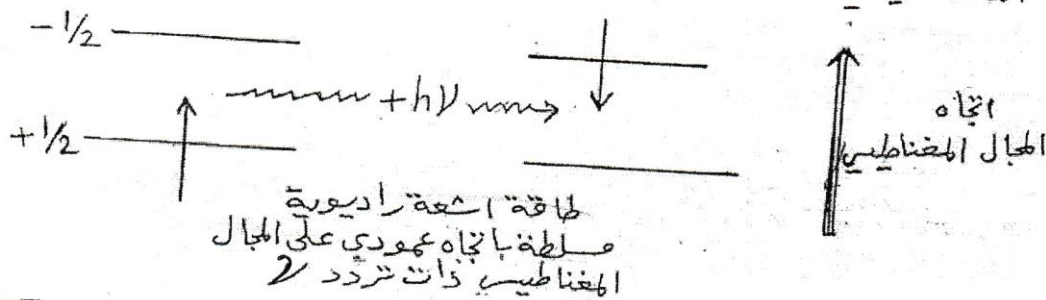 -1/2
+hν
+1/2
اتجاه
المجال المغناطيسي
طاقة اشعة راديوية
مسلطة باتجاه عمودي على المجال
المغناطيسي ذات تردد ν